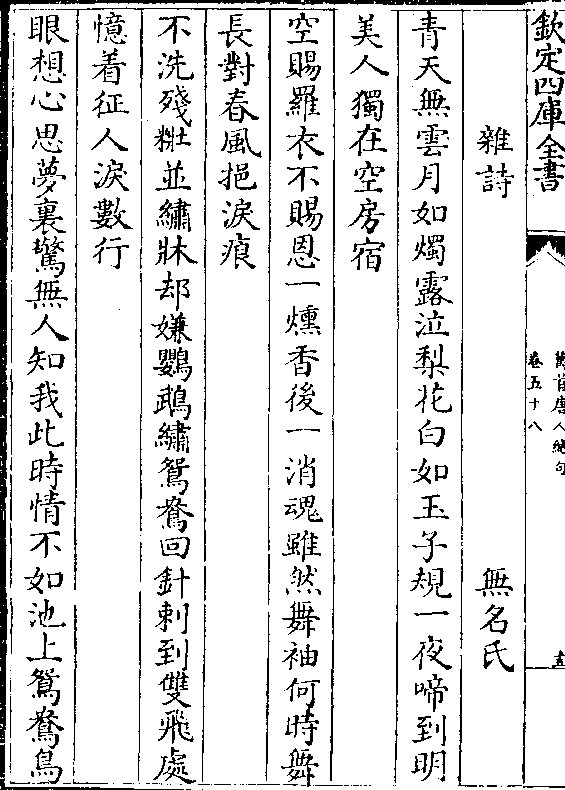 欽定四庫全書
萬首唐人絶句
卷五十八
雜詩 無名氏
青天無雲月如燭露泣梨花白如玉子規一夜啼到明
美人獨在空房宿
空賜羅衣不賜恩一燻香後一消魂雖然舞袖何時舞
長對春風挹淚痕
不洗殘粧並繡牀却嫌鸚鵡繡鴛鴦回針刺到雙飛處
憶着征人淚數行
眼想心思夢裏驚無人知我此時情不如池上鴛鴦鳥